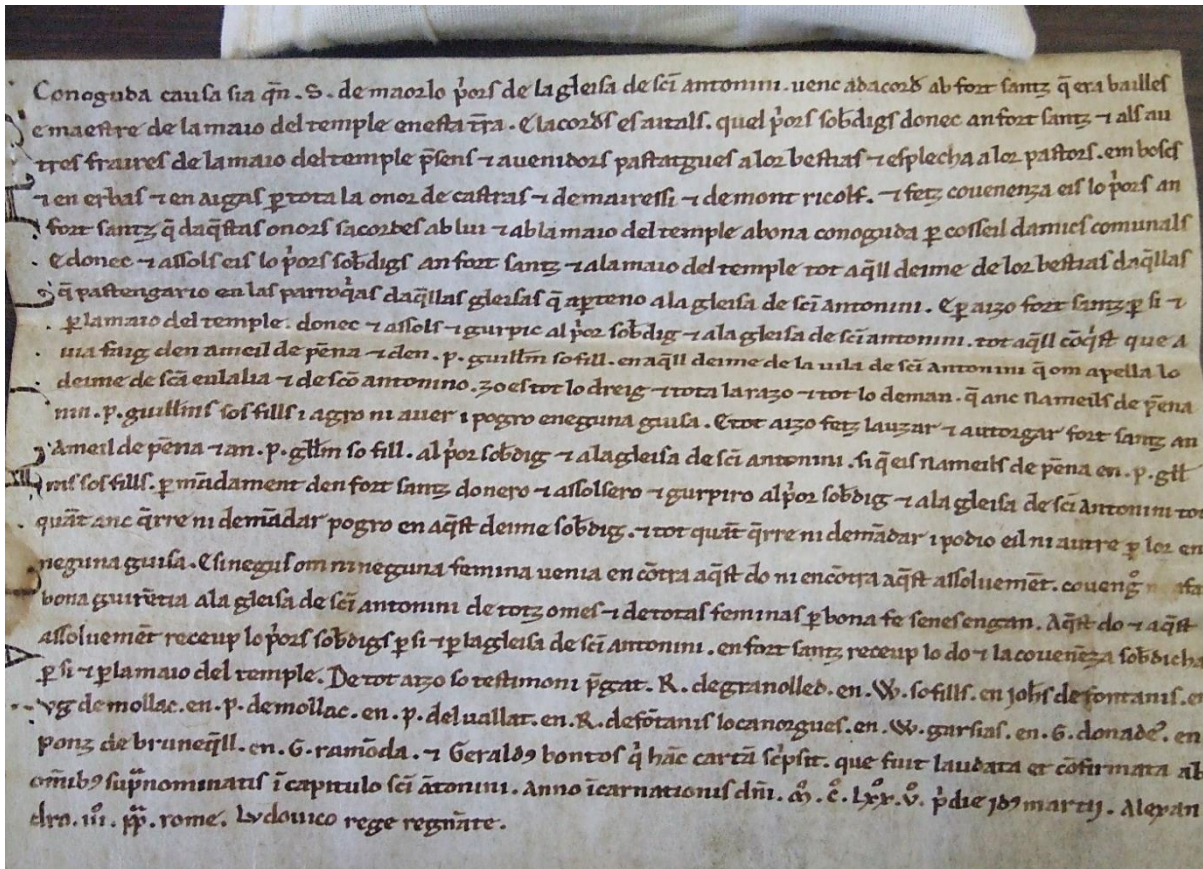 Conoguda causa sia q̄n. S. de maorlo p̓ors de la gleisa de sc̄i antonini. venc ad acord ab fort santz q̄ era bailles
e maestre de la maio del temple en esta t̄ra. E lacords es aitals. quel p̓ors sob̄digs donec an fort santz ⁊ als au
tres fraires de la maio del temple p̄sens ⁊ avenidors pastatgues a lor bestias ⁊ esplecha a lor pastors. em boscs
⁊ en erbas ⁊ en aigas ꝑ tota la onor de castras ⁊ de mairessi ⁊ de mont ricolf. ⁊ fetz covenenza eis lo p̓ors an
fort santz q̄ daq̄stas onors sacordes ab lui ⁊ ab la maio del temple a bona conoguda ꝑ cosseil damics comunals
E donec ⁊ assols eis lo p̓ors sob̄digs an fort santz ⁊ a la maio del temple tot aq̄ll deime de lor bestias daq̄llas
q̄ pastengario en las parroq̓as daq̄llas gleisas q̄ aꝑteno a la gleisa de sc̄i antonini. E ꝑ aizo fort santz ꝑ si ⁊
ꝑ la maio del temple. donec ⁊ assols ⁊ gurpic al p̓or sob̄dig ⁊ a la gleisa de sc̄i antonini. tot aq̄ll cōq̓st que a
via faig den ameil de pēna ⁊ den. p. guillm̄ so fill. en aq̄ll deime de la vila de sc̄i antonini q̄ om apella lo
deime de sc̄a eulalia ⁊ de sc̄o antonino. zo es tot lo dreig ⁊ tota la razo ⁊ tot lo deman. q̄ anc nameils de pēna
nin. p. guillms sos fills i agro ni aver i pogro e neguna guisa. E tot aizo fetz lauzar ⁊ autorgar fort santz an
Ameil de pēna ⁊ an. p. gll̄m so fill. al p̓or sob̄dig ⁊ a la gleisa de sc̄i antonini. si q̄ eis nameils de pēna en. p. gll̄
ms sos fills. ꝑ mādament den fort santz donero ⁊ assolsero ⁊ gurpiro al p̓or sob̄dig ⁊ a la gleisa de sc̄i antonini tot
quāt anc q̄rre ni demādar pogro en aq̄st deime sob̄dig. ⁊ tot quāt q̄rre ni demādar i podio eil ni autre ꝑ lor en
neguna guisa. E si negus om ni neguna femina venia en cōtra aq̄st do ni encōtra aq̄st assolvemēt. coveng
bona guirētia a la gleisa de sc̄i antonini de totz omes ⁊ de totas feminas ꝑ bona fe senes engan. Aq̄st do ⁊ aq̄st
assolvemēt receup lo p̓ors sob̄digs ꝑ si ⁊ ꝑ la gleisa de sc̄i antonini. en fort santz receup lo do ⁊ la covenēza sob̄dicha
ꝑ si ⁊ ꝑ la maio del temple. De tot aizo so testimoni p̄gat. R. de granolled. en. W. so fills. en joh̄s de fontanis. e
vg de mollac. en. p. de mollac. en. p. del vallat. en. R. de fōtanis lo canorgues. en. W. garsias. en. G. donade. en
ponz de bruneq̄ll. en. G. ramōda. ⁊ Geraldꝰ bontos q̓ hāc cartā sc̓psit. que fuit laudata et cōfirmata ab
om̄ibꝰ sup̄nominatis ī capitulo sc̄i ātonini. Anno īcarnationis dn̄i. M̊. C̊. Lxx̊. v̊. p̓die idꝰ martij. Alexan
dro. iii̊. pp̄. rome. Lvdovico rege regnāte.